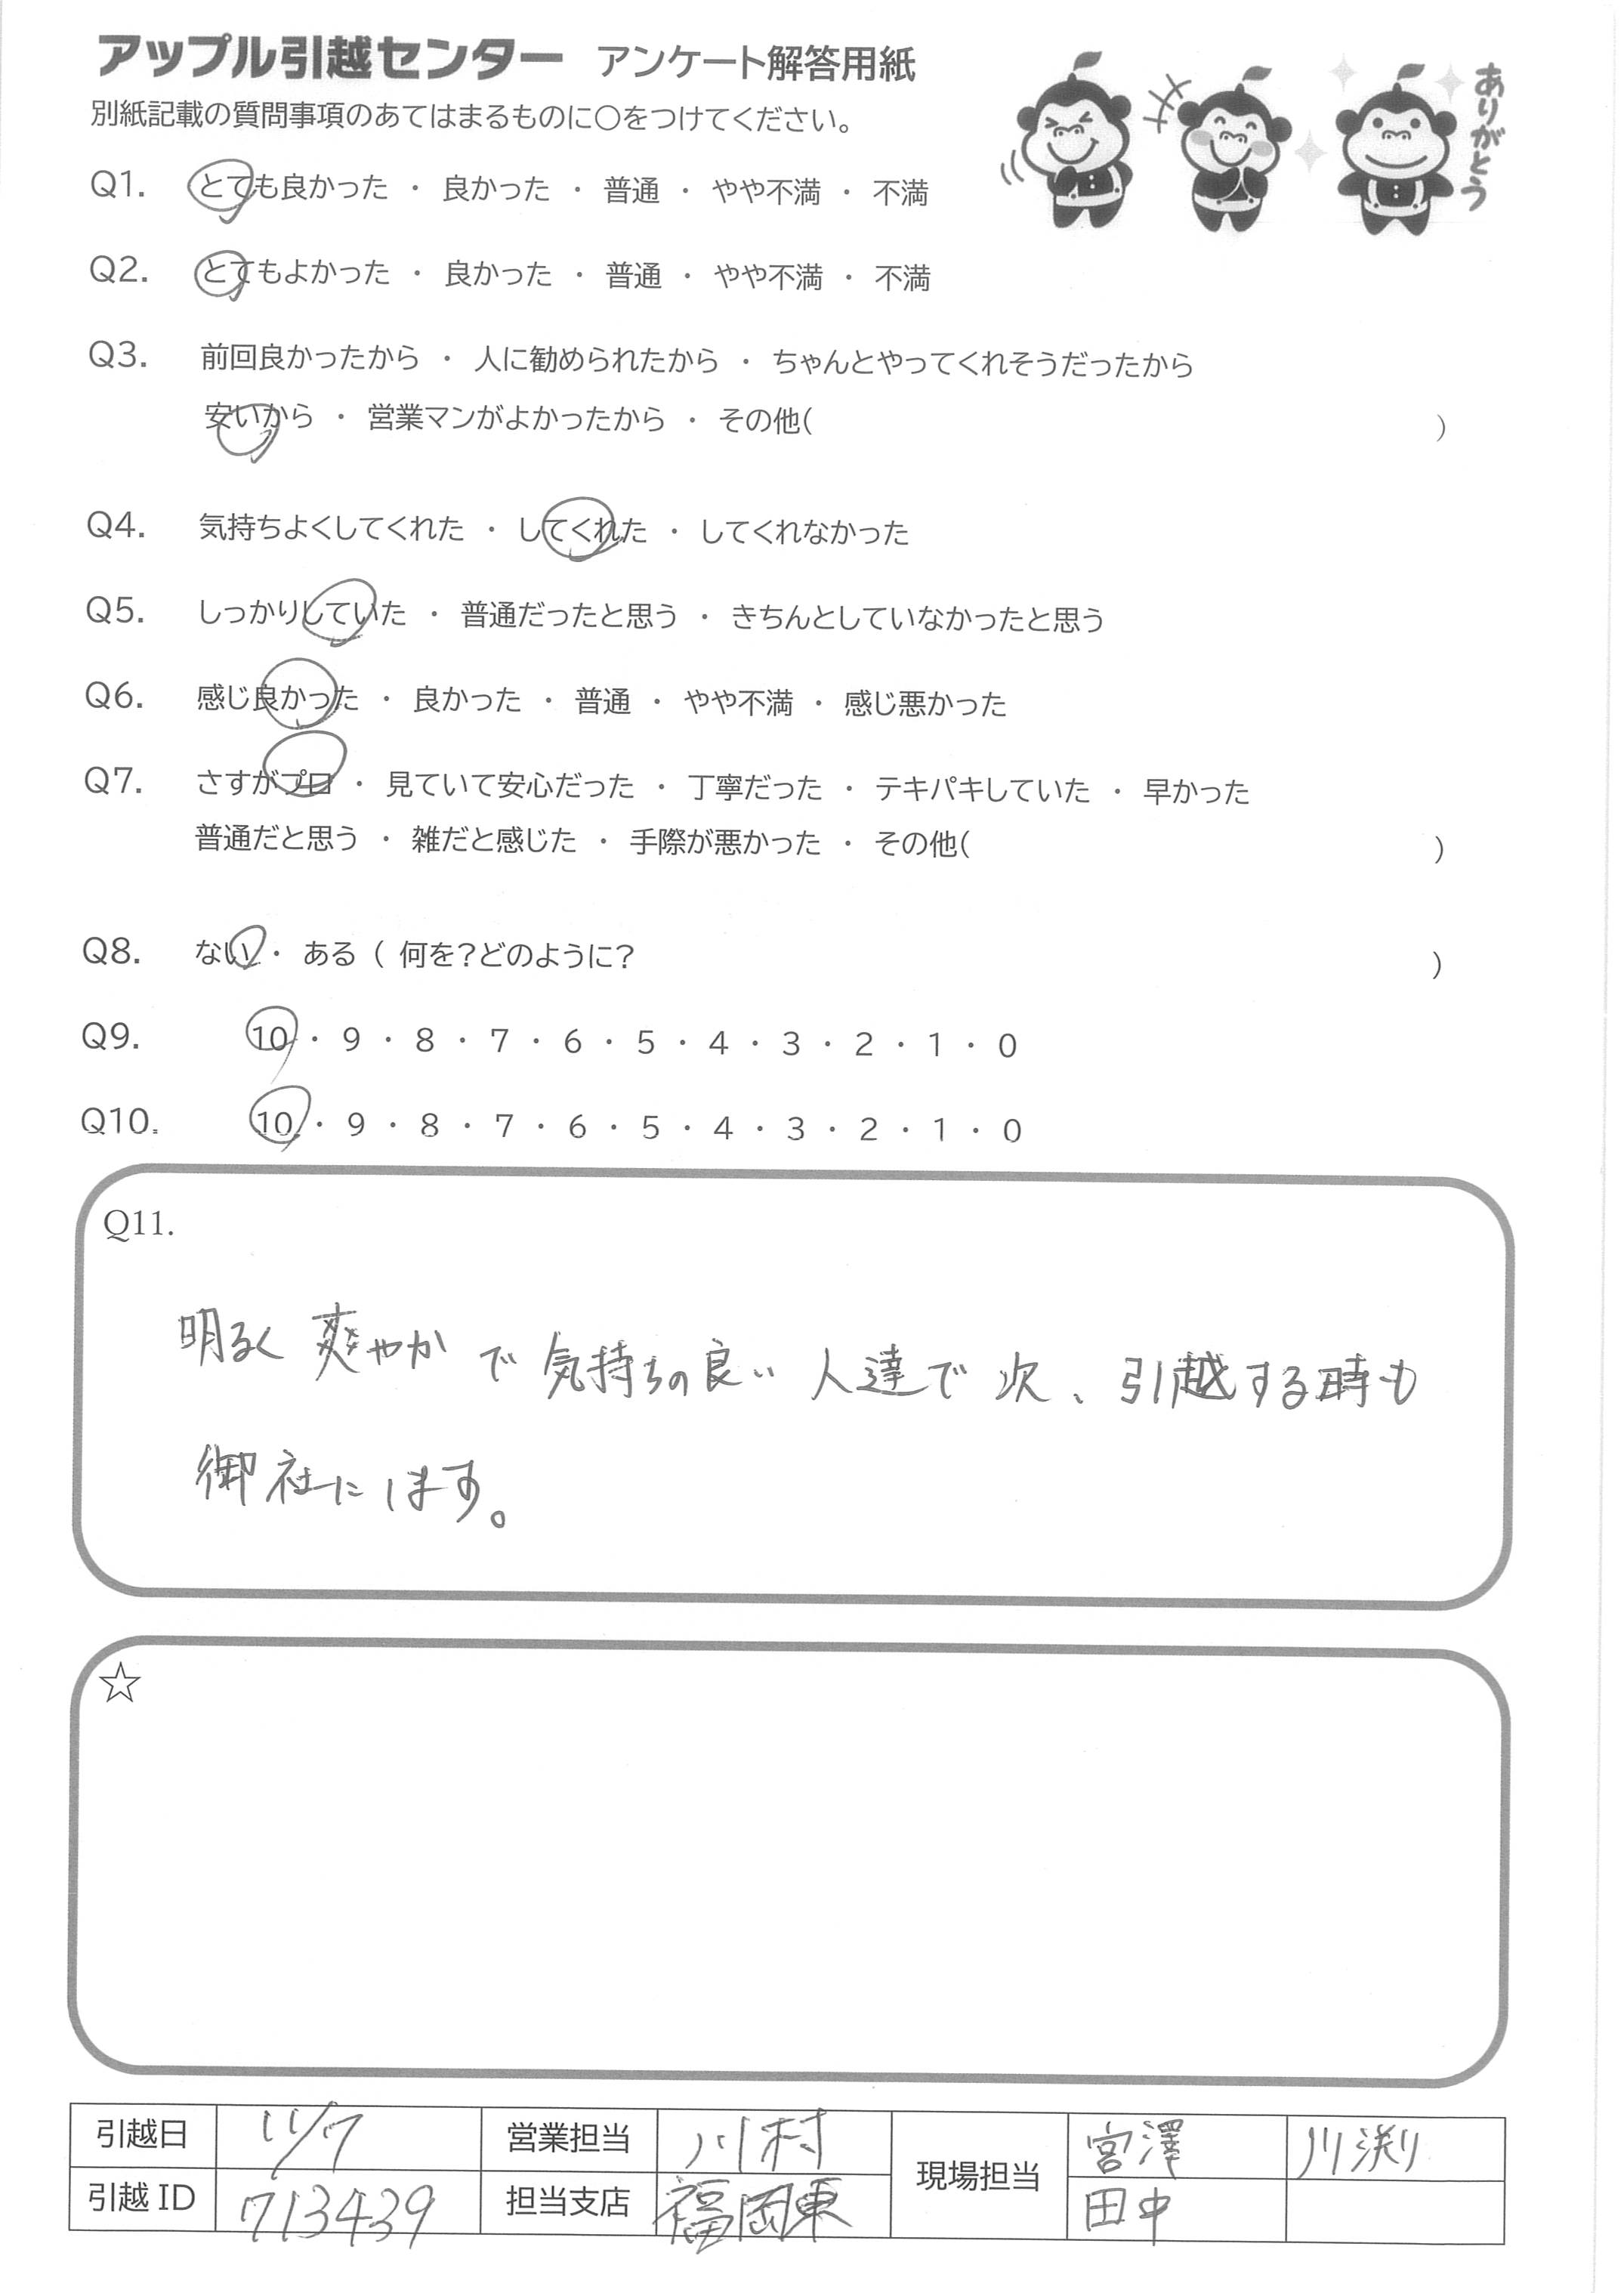 アップル引越センター アンケート解答用紙
ありがとう
別紙記載の質問事項のあてはまるものに○をつけてください。
Q1. とても良かった ・ 良かった ・ 普通 ・ やや不満 ・ 不満
Q2. とてもよかった ・ 良かった ・ 普通 ・ やや不満 ・ 不満
Q3. 前回良かったから ・ 人に勧められたから ・ ちゃんとやってくれそうだったから
安いから ・ 営業マンがよかったから ・ その他( )
Q4. 気持ちよくしてくれた ・ してくれた ・ してくれなかった
Q5. しっかりしていた ・ 普通だったと思う ・ きちんとしていなかったと思う
Q6. 感じ良かった ・ 良かった ・ 普通 ・ やや不満 ・ 感じ悪かった
Q7. さすがプロ ・ 見ていて安心だった ・ 丁寧だった ・ テキパキしていた ・ 早かった
普通だと思う ・ 雑だと感じた ・ 手際が悪かった ・ その他( )
Q8. ない ・ ある ( 何を?どのように? )
Q9. 10 ・ 9 ・ 8 ・ 7 ・ 6 ・ 5 ・ 4 ・ 3 ・ 2 ・ 1 ・ 0
Q10. 10 ・ 9 ・ 8 ・ 7 ・ 6 ・ 5 ・ 4 ・ 3 ・ 2 ・ 1 ・ 0
Q11.
明るく 爽やか で 気持ちの良い 人達で 次、引越する時も
御社にします。
☆
引越日 11/7 営業担当 川村 現場担当 宮澤 川渕
引越 ID 713439 担当支店 福岡東 田中